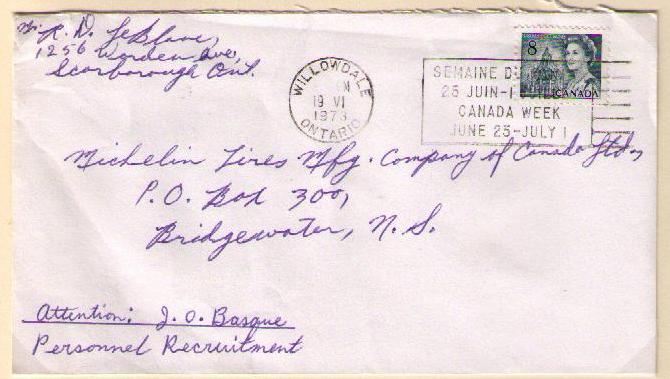 Mr. R. D. LeBlanc,
1256 Warden Ave,
Scarborough Ont.
WILLOWDALE
PM
19 VI
1973
ONTARIO
8
CANADA
SEMAINE D
25 JUIN-1
CANADA WEEK
JUNE 25-JULY 1
Michelin Tires Mfg. Company of Canada Ltd.,
P.O. Box 300,
Bridgewater, N. S.
Attention: J. O. Basque
Personnel Recruitment